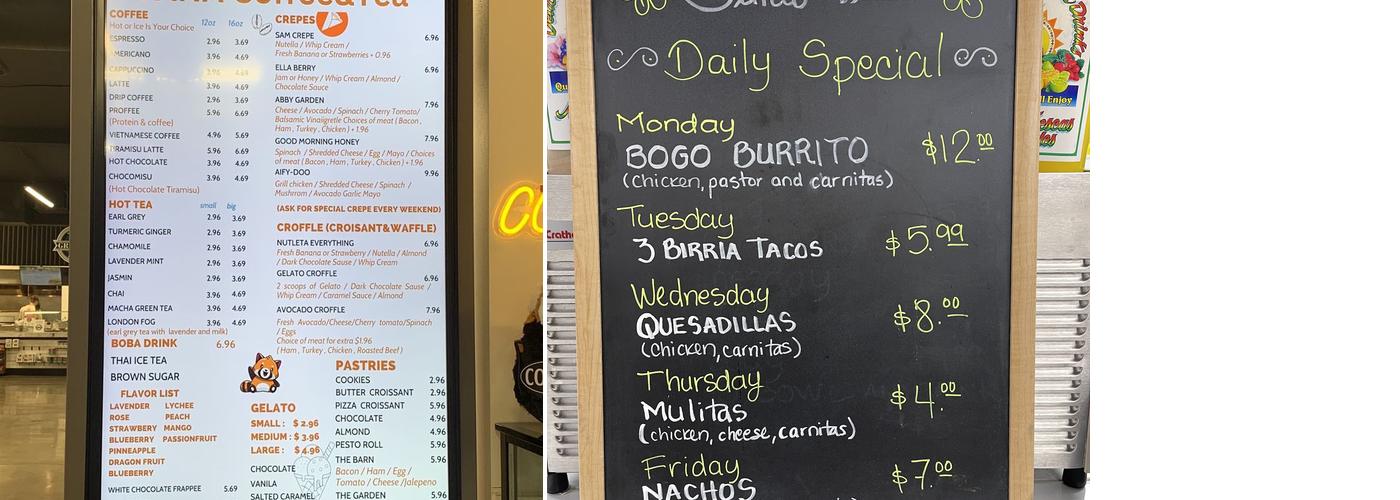 COFFEE
Hot or Ice Is Your Choice 12oz 16oz
ESPRESSO 2.96 3.69
AMERICANO 2.96 3.69
CAPPUCCINO 3.96 4.69
LATTE 3.96 4.69
DRIP COFFEE 2.96 3.69
PROFFEE 5.96 6.69
(Protein & coffee)
VIETNAMESE COFFEE 4.96 5.69
TIRAMISU LATTE 5.96 6.69
HOT CHOCOLATE 3.96 4.69
CHOCOMISU 3.96 4.69
(Hot Chocolate Tiramisu)
HOT TEA small big
EARL GREY 2.96 3.69
TURMERIC GINGER 2.96 3.69
CHAMOMILE 2.96 3.69
LAVENDER MINT 2.96 3.69
JASMIN 2.96 3.69
CHAI 3.96 4.69
MACHA GREEN TEA 3.96 4.69
LONDON FOG 3.96 4.69
(earl grey tea with lavender and milk)
BOBA DRINK 6.96
THAI ICE TEA
BROWN SUGAR
FLAVOR LIST
LAVENDER LYCHEE
ROSE PEACH
STRAWBERY MANGO
BLUEBERRY PASSIONFRUIT
PINNEAPPLE
DRAGON FRUIT
BLUEBERRY
WHITE CHOCOLATE FRAPPEE 5.69
CREPES
SAM CREPE 6.96
Nutella / Whip Cream /
Fresh Banana or Strawberries + 0.96
ELLA BERRY 6.96
Jam or Honey / Whip Cream / Almond /
Chocolate Sauce
ABBY GARDEN 7.96
Cheese / Avocado / Spinach / Cherry Tomato/
Balsamic Vinaigretle Choices of meat ( Bacon ,
Ham , Turkey , Chicken ) + 1.96
GOOD MORNING HONEY 7.96
Spinach / Shredded Cheese / Egg / Mayo / Choices
of meat ( Bacon , Ham , Turkey , Chicken ) + 1.96
AIFY-DOO 9.96
Grill chicken / Shredded Cheese / Spinach /
Mushrrom / Avocado Garlic Mayo
(ASK FOR SPECIAL CREPE EVERY WEEKEND)
CROFFLE (CROISANT&WAFFLE)
NUTLETA EVERYTHING 6.96
Fresh Banana or Strawberry / Nutella / Almond
/ Dark Chocolate Sauce / Whip Cream
GELATO CROFFLE 6.96
2 scoops of Gelato / Dark Chocolate Sause /
Whip Cream / Caramel Sauce / Almond
AVOCADO CROFFLE 7.96
Fresh Avocado/Cheese/Cherry tomato/Spinach
/ Eggs
Choice of meat for extra $1.96
( Ham , Turkey , Chicken , Roasted Beef )
GELATO
SMALL : $ 2.96
MEDIUM : $ 3.96
LARGE : $ 4.96
CHOCOLATE
VANILA
SALTED CARAMEL
PASTRIES
COOKIES 2.96
BUTTER CROISSANT 2.96
PIZZA CROISSANT 5.96
CHOCOLATE 4.96
ALMOND 4.96
PESTO ROLL 5.96
THE BARN 5.96
Bacon / Ham / Egg /
Tomato / Cheese /Jalepeno
THE GARDEN 5.96
CO
Daily Special
Monday
BOGO BURRITO $12.00
(Chicken, pastor and carnitas)
Tuesday
3 BIRRIA TACOS $5.99
Wednesday
QUESADILLAS $8.00
(Chicken, carnitas)
Thursday
Mulitas $4.00
(chicken, cheese, carnitas)
Friday
NACHOS $7.00